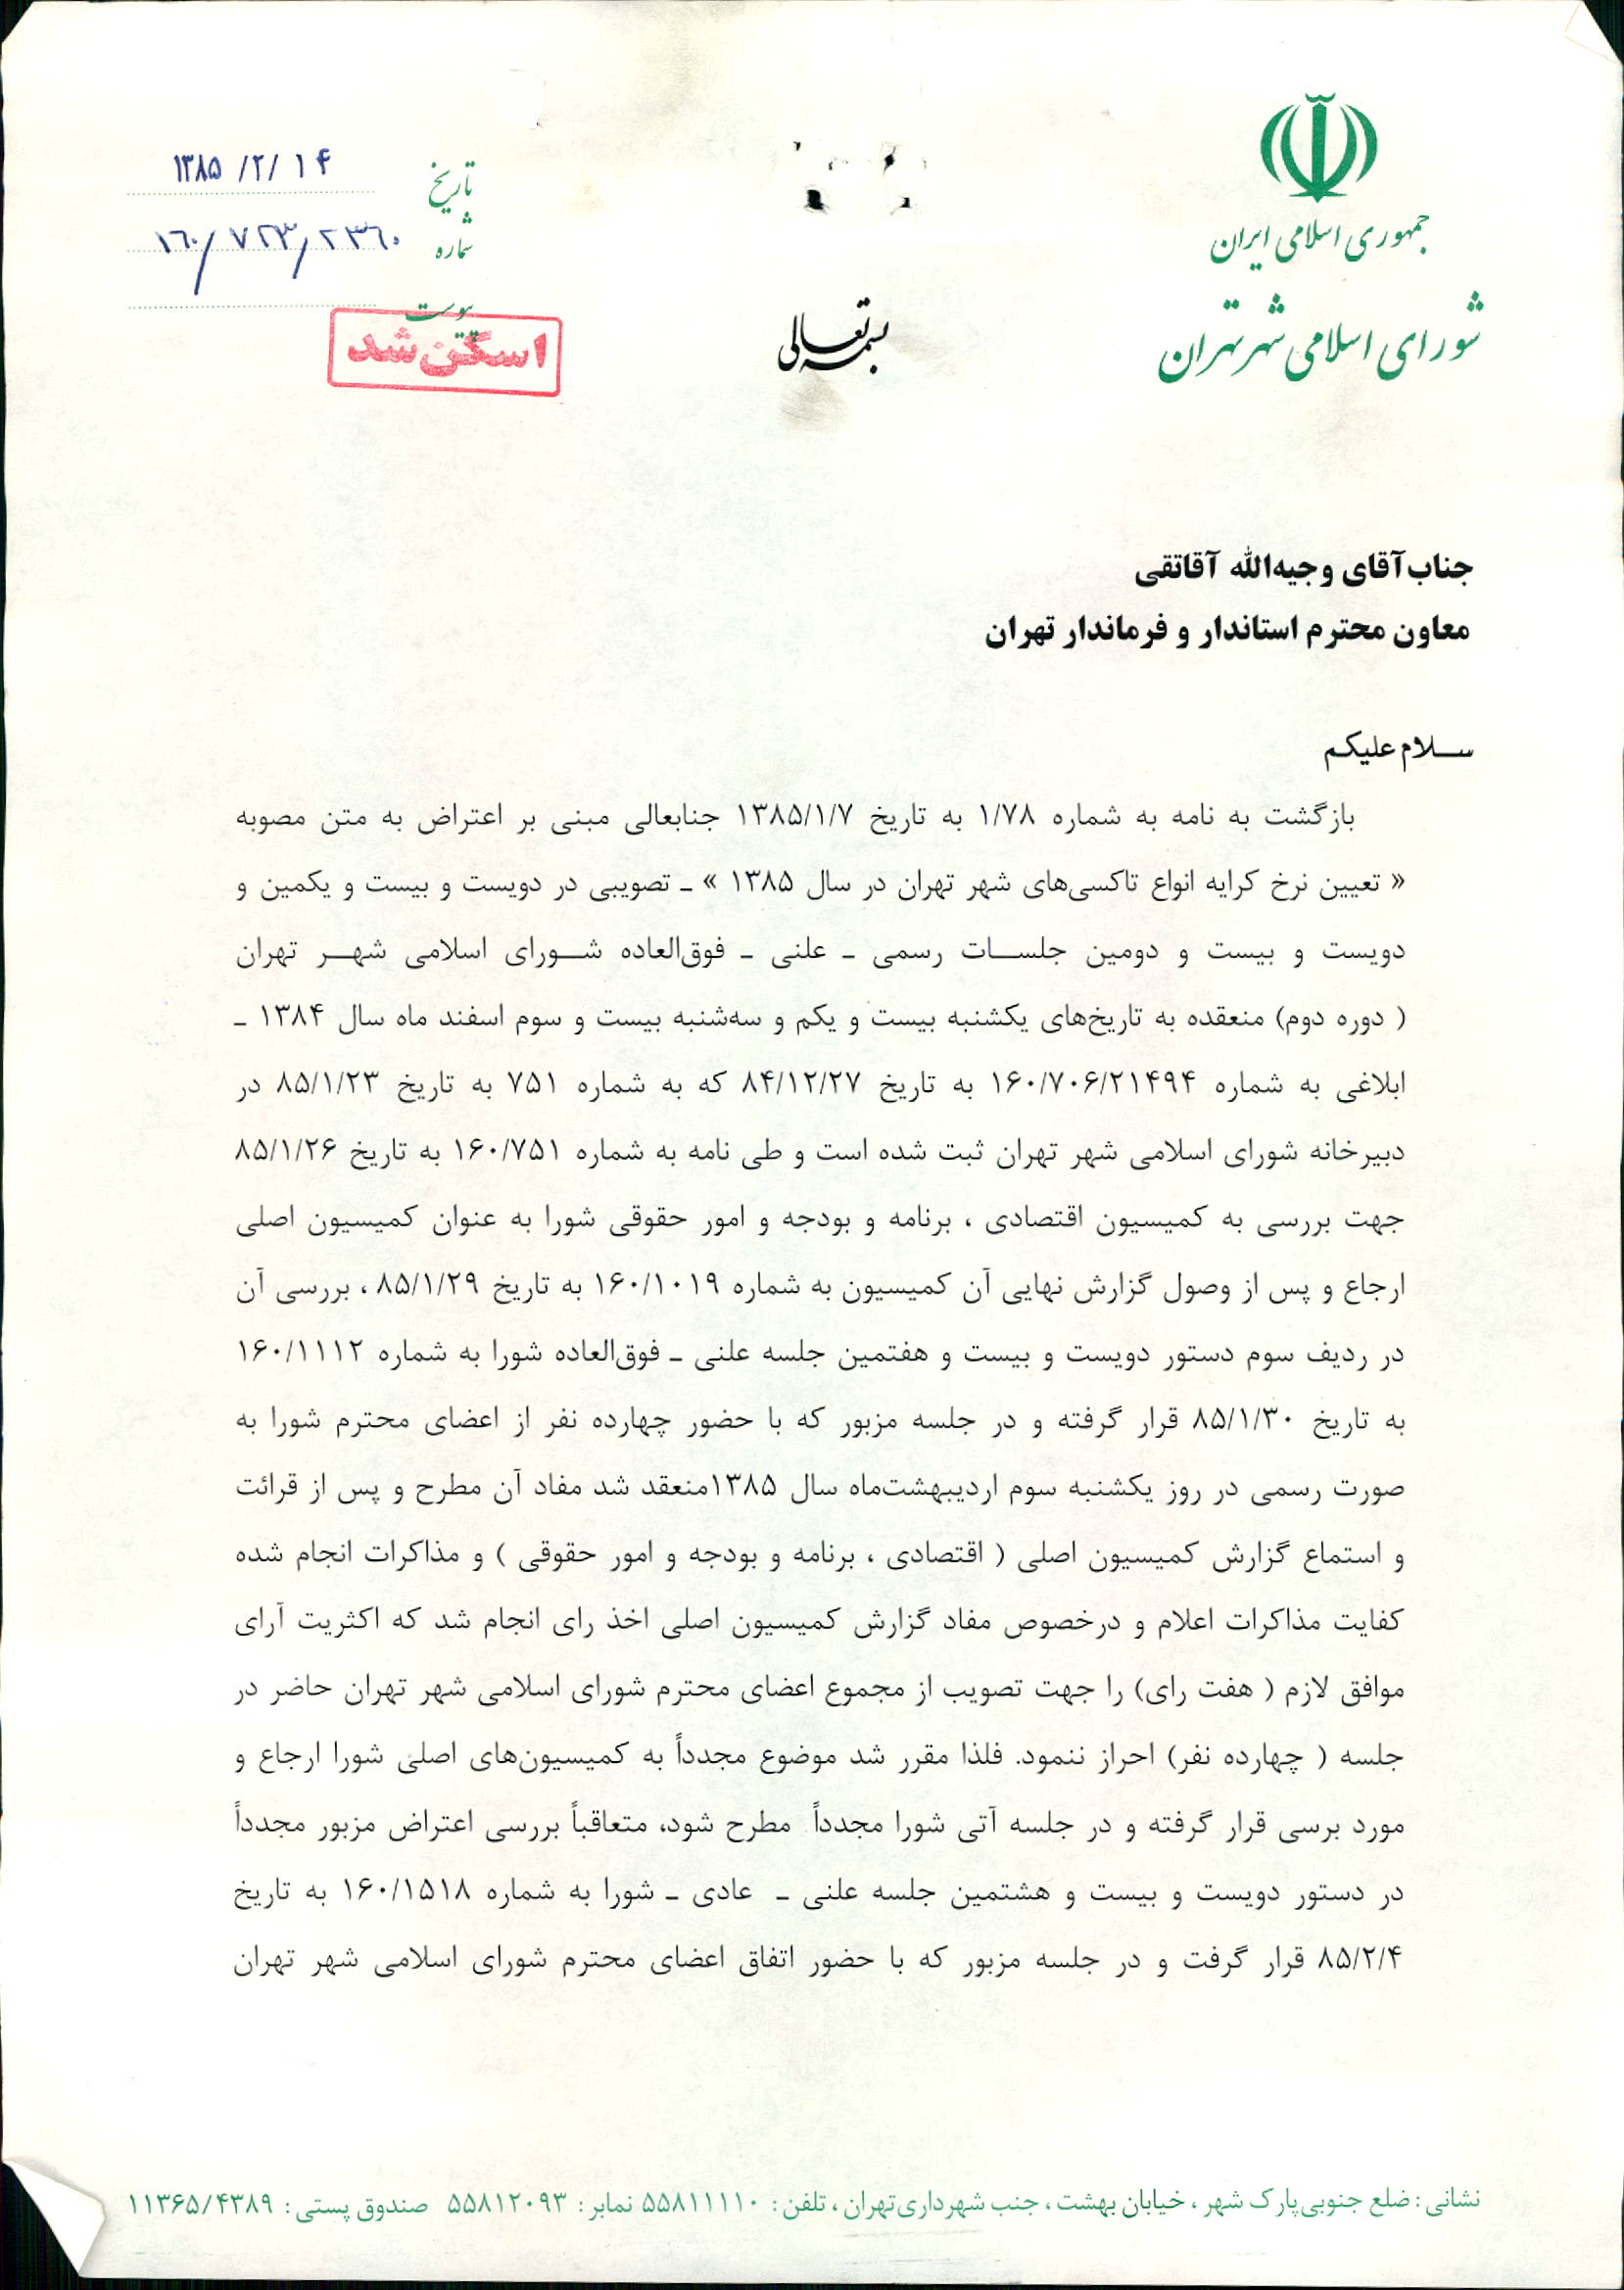 جمهوری اسلامی ایران
شورای اسلامی شهر تهران
بسمه تعالی
تاریخ ۱۳۸۵/۲/۱۴
شماره ۱۶۰/۷۲۳/۲۳۶۰
پیوست
اسکن شد
جناب آقای وجیه‌الله آقاتقی
معاون محترم استاندار و فرماندار تهران
سـلام علیکم
بازگشت به نامه به شماره ۱/۷۸ به تاریخ ۱۳۸۵/۱/۷ جنابعالی مبنی بر اعتراض به متن مصوبه
« تعیین نرخ کرایه انواع تاکسی‌های شهر تهران در سال ۱۳۸۵ » ـ تصویبی در دویست و بیست و یکمین و
دویست و بیست و دومین جلسـات رسمی ـ علنی ـ فوق‌العاده شـورای اسلامی شهـر تهران
( دوره دوم) منعقده به تاریخ‌های یکشنبه بیست و یکم و سه‌شنبه بیست و سوم اسفند ماه سال ۱۳۸۴ ـ
ابلاغی به شماره ۱۶۰/۷۰۶/۲۱۴۹۴ به تاریخ ۸۴/۱۲/۲۷ که به شماره ۷۵۱ به تاریخ ۸۵/۱/۲۳ در
دبیرخانه شورای اسلامی شهر تهران ثبت شده است و طی نامه به شماره ۱۶۰/۷۵۱ به تاریخ ۸۵/۱/۲۶
جهت بررسی به کمیسیون اقتصادی ، برنامه و بودجه و امور حقوقی شورا به عنوان کمیسیون اصلی
ارجاع و پس از وصول گزارش نهایی آن کمیسیون به شماره ۱۶۰/۱۰۱۹ به تاریخ ۸۵/۱/۲۹ ، بررسی آن
در ردیف سوم دستور دویست و بیست و هفتمین جلسه علنی ـ فوق‌العاده شورا به شماره ۱۶۰/۱۱۱۲
به تاریخ ۸۵/۱/۳۰ قرار گرفته و در جلسه مزبور که با حضور چهارده نفر از اعضای محترم شورا به
صورت رسمی در روز یکشنبه سوم اردیبهشت‌ماه سال ۱۳۸۵منعقد شد مفاد آن مطرح و پس از قرائت
و استماع گزارش کمیسیون اصلی ( اقتصادی ، برنامه و بودجه و امور حقوقی ) و مذاکرات انجام شده
کفایت مذاکرات اعلام و درخصوص مفاد گزارش کمیسیون اصلی اخذ رای انجام شد که اکثریت آرای
موافق لازم ( هفت رای) را جهت تصویب از مجموع اعضای محترم شورای اسلامی شهر تهران حاضر در
جلسه ( چهارده نفر) احراز ننمود. فلذا مقرر شد موضوع مجدداً به کمیسیون‌های اصلی شورا ارجاع و
مورد برسی قرار گرفته و در جلسه آتی شورا مجدداً مطرح شود، متعاقباً بررسی اعتراض مزبور مجدداً
در دستور دویست و بیست و هشتمین جلسه علنی ـ عادی ـ شورا به شماره ۱۶۰/۱۵۱۸ به تاریخ
۸۵/۲/۴ قرار گرفت و در جلسه مزبور که با حضور اتفاق اعضای محترم شورای اسلامی شهر تهران
نشانی : ضلع جنوبی پارک شهر ، خیابان بهشت ، جنب شهرداری تهران ، تلفن : ۵۵۸۱۱۱۱۰ نمابر : ۵۵۸۱۲۰۹۳ صندوق پستی : ۱۱۳۶۵/۴۳۸۹